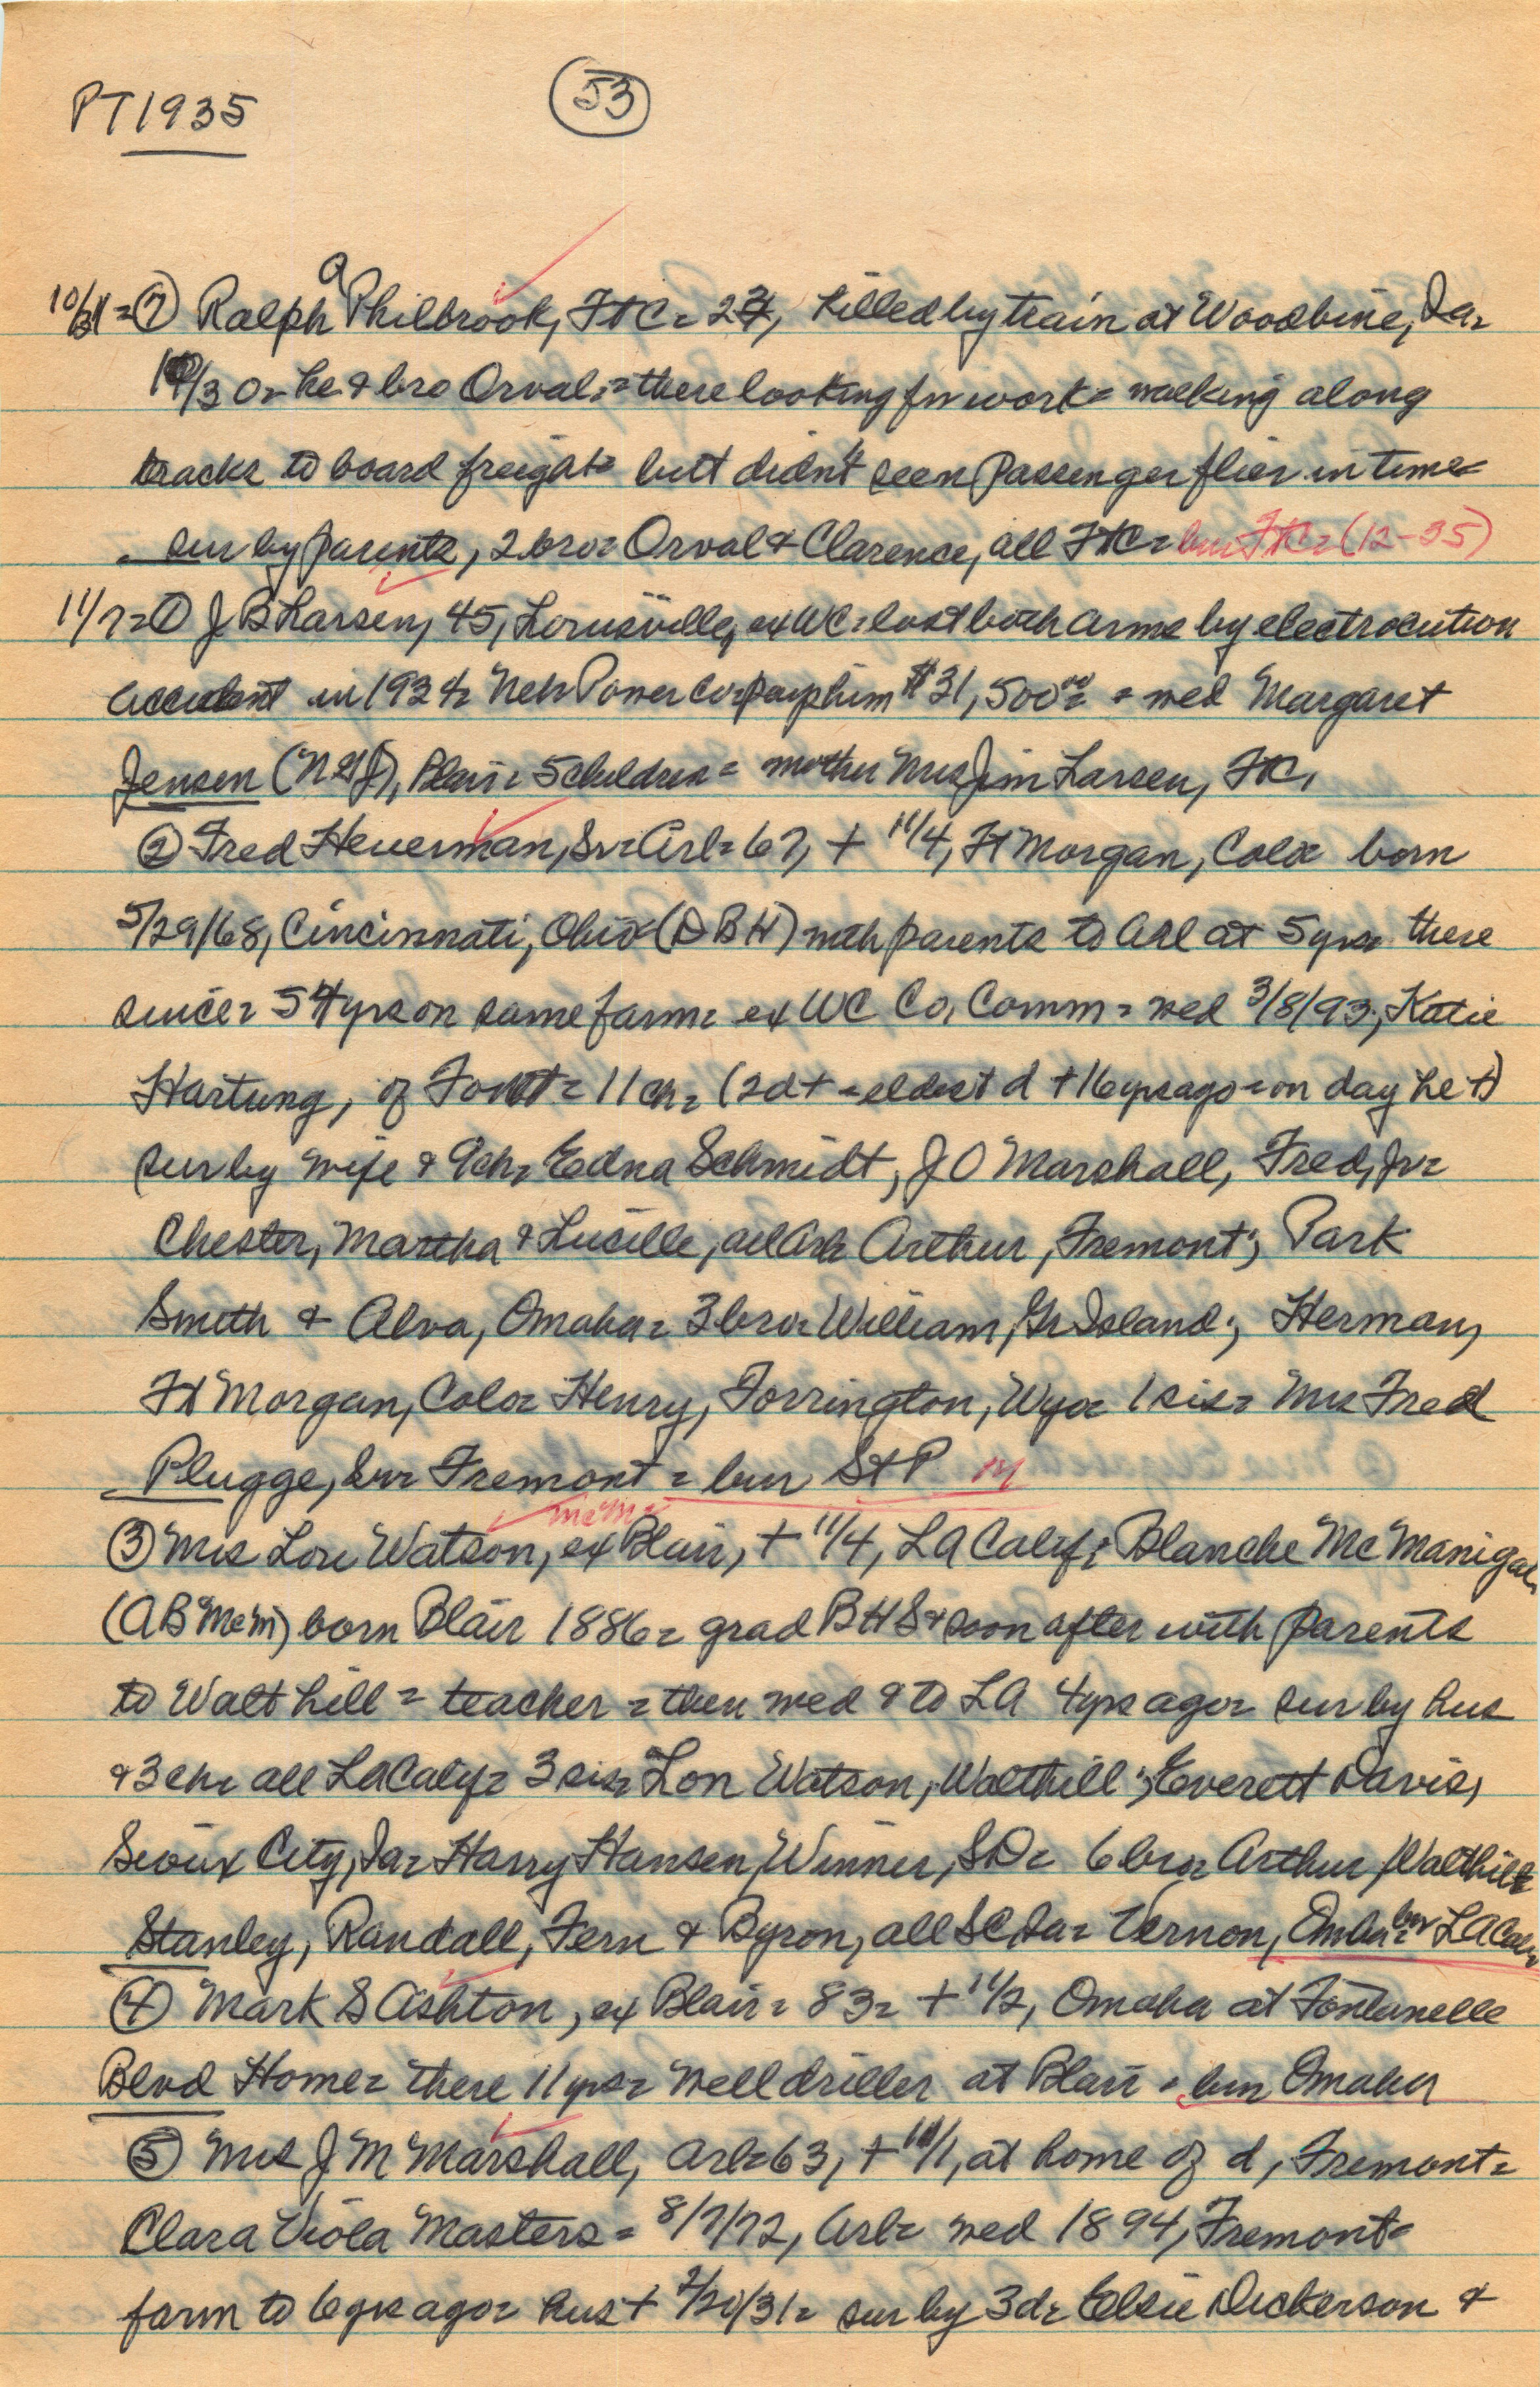 PT1935
53
a
10/31 = ⑦ Ralph Philbrook, FtC = 23, killed by train at Woodbine, Ia =
10/30 = he & bro Orval = there looking for work = walking along
tracks to board freight = but didn't seen passenger flier in time =
sur by parents, 2 bro = Orval & Clarence, all FtC = bur FtC = (12-35)
11/7 = ① J B Larsen, 45, Louisville, ex WC = lost both arms by electrocution
accident in 1934 = Neb Power Co = pay him $31,500.00 = wed Margaret
Jensen (NGJ), Blair = 5 children = mother Mrs Jim Larsen, FtC,
② Fred Heuerman, Sr = Arl = 67, + 11/4, Ft Morgan, Colo = born
5/29/68, Cincinnati, Ohio = (DBH) with parents to Arl at 5 yrs = there
since = 54 yrs on same farm = ex WC Co, Comm = wed 3/8/93, Katie
Hartung, of Font = 11 ch = (2 d + = eldest d + 16 yrs ago = on day he +)
sur by wife & 9 ch = Edna Schmidt, J O Marshall, Fred, Jr =
Chester, Martha & Lucille, all Arl = Arthur, Fremont; Park
Smith & Alva, Omaha = 3 bro = William, Gr Island; Herman,
Ft Morgan, Colo = Henry, Torrington, Wyo = 1 sis = Mrs Fred
Plugge, Sr = Fremont = bur St P
McM
③ Mrs Lou Watson, ex Blair, + 11/4, LA Calif; Blanche McManigal,
(ABMcM) born Blair 1886 = grad BHS & soon after with parents
to Walthill = teacher = then wed & to LA 4 yrs ago = sur by hus
& 3 ch = all LA Calif = 3 sis = Lon Watson, Walthill; Everett Davis,
Sioux City, Ia = Harry Hansen, Winner, SD = 6 bro = Arthur, Walthill
Stanley, Randall, Fern & Byron, all SC Ia = Vernon, Omaha = bur LA Calif
④ Mark S Ashton, ex Blair = 83 = + 11/2, Omaha at Fontenelle
Blvd Home = there 11 yrs = well driller at Blair = bur Omaha
⑤ Mrs J M Marshall, Arl = 63, + 11/1, at home of d, Fremont =
Clara Viola Masters = 8/7/72, Arl = wed 1894, Fremont =
farm to 6 yrs ago = hus + 2/20/31 = sur by 3 d = Elsie Dickerson &